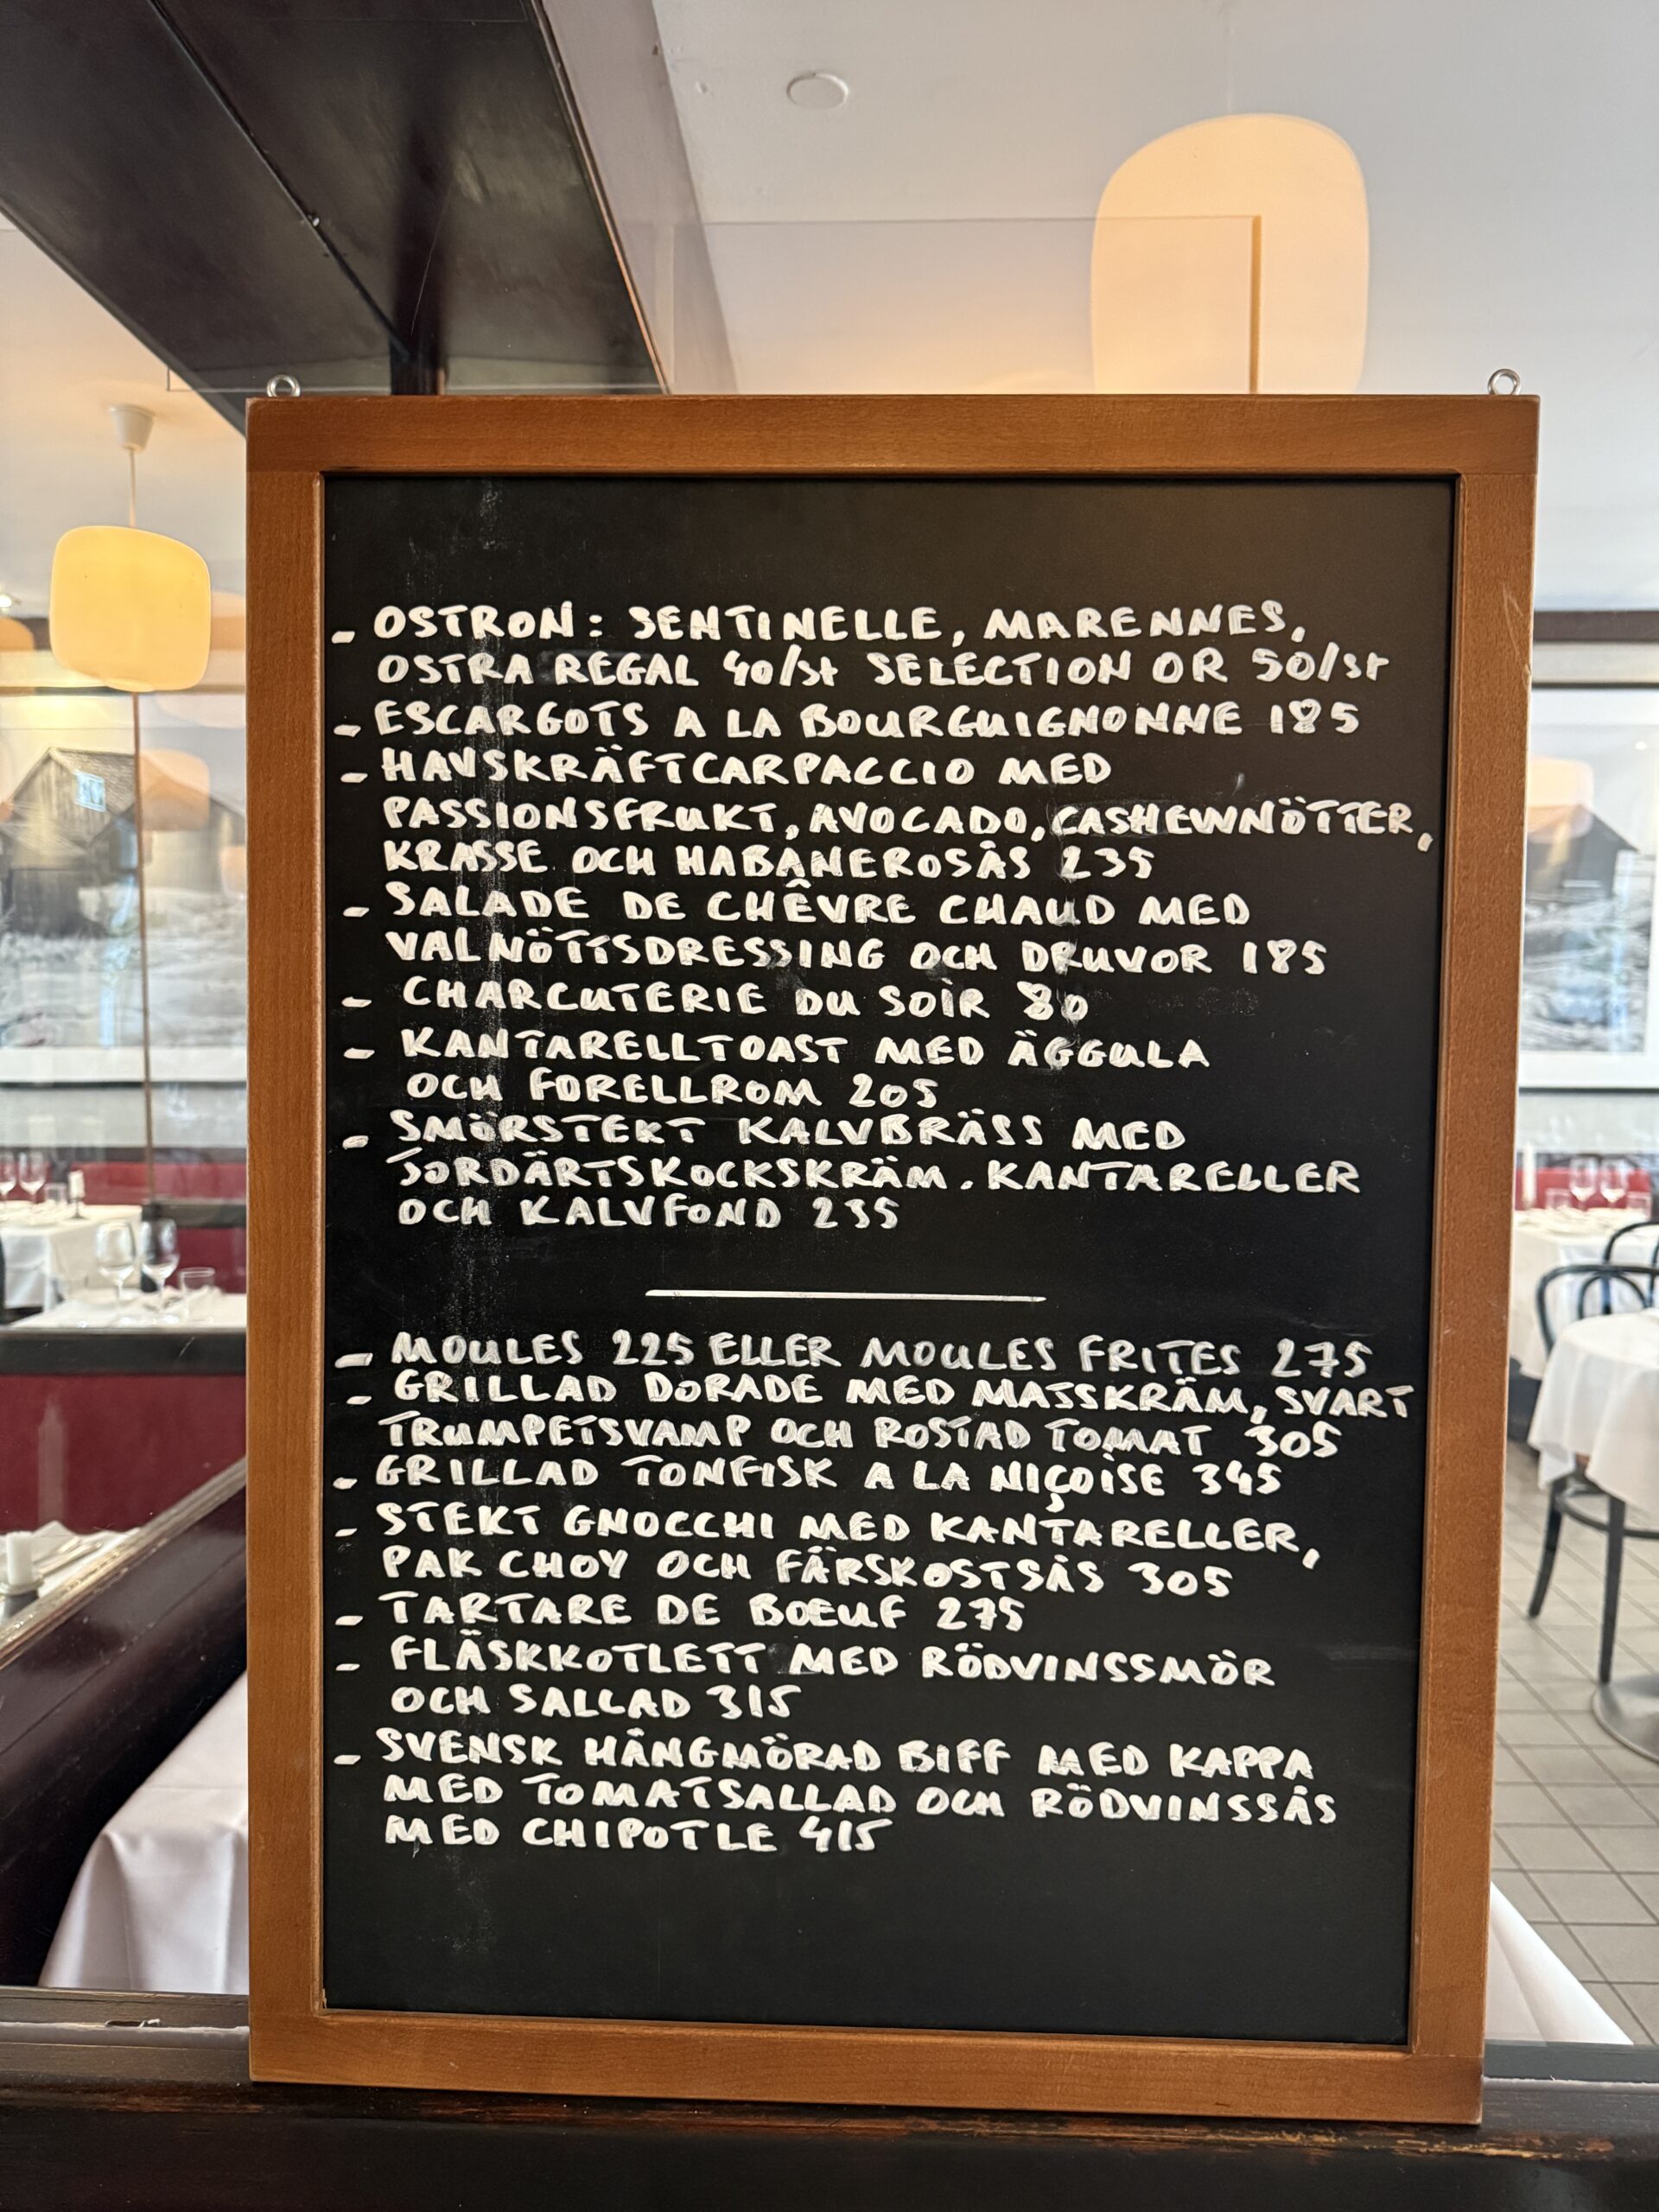 - OSTRON: SENTINELLE, MARENNES,
OSTRA REGAL 40/st SELECTION OR 50/st
- ESCARGOTS A LA BOURGUIGNONNE 185
- HAVSKRÄFTCARPACCIO MED
PASSIONSFRUKT, AVOCADO, CASHEWNÖTTER,
KRASSE OCH HABANEROSÅS 235
- SALADE DE CHÊVRE CHAUD MED
VALNÖTTSDRESSING OCH DRUVOR 185
- CHARCUTERIE DU SOIR 80
- KANTARELLTOAST MED ÄGGULA
OCH FORELLROM 205
- SMÖRSTEKT KALVBRÄSS MED
JORDÄRTSKOCKSKRÄM. KANTARELLER
OCH KALVFOND 235
- MOULES 225 ELLER MOULES FRITES 275
- GRILLAD DORADE MED MAJSKRÄM, SVART
TRUMPETSVAMP OCH ROSTAD TOMAT 305
- GRILLAD TONFISK A LA NIÇOISE 345
- STEKT GNOCCHI MED KANTARELLER,
PAK CHOY OCH FÄRSKOSTSÅS 305
- TARTARE DE BOEUF 275
- FLÄSKKOTLETT MED RÖDVINSSMÖR
OCH SALLAD 315
- SVENSK HÄNGMÖRAD BIFF MED KAPPA
MED TOMATSALLAD OCH RÖDVINSSÅS
MED CHIPOTLE 415